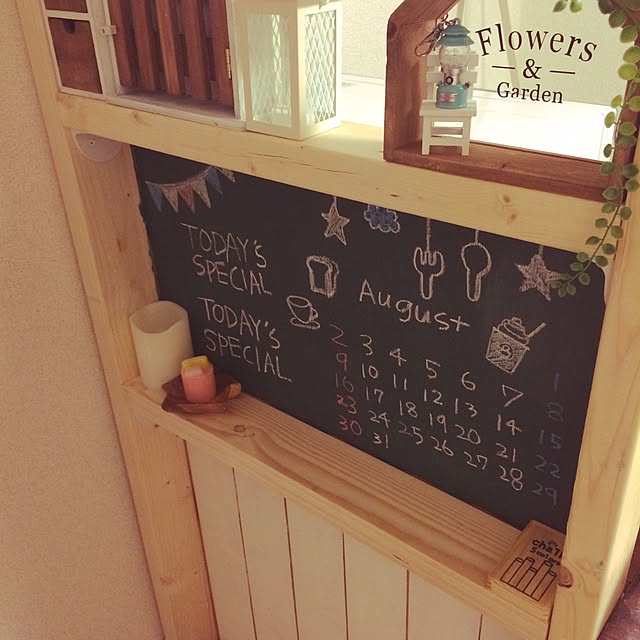 Flowers
&
Garden
TODAY'S
SPECIAL
TODAY'S
SPECIAL
August
8
1
2 3 4 5 6 7 8
9 10 11 12 13 14 15
16 17 18 19 20 21 22
23 24 25 26 27 28 29
30 31